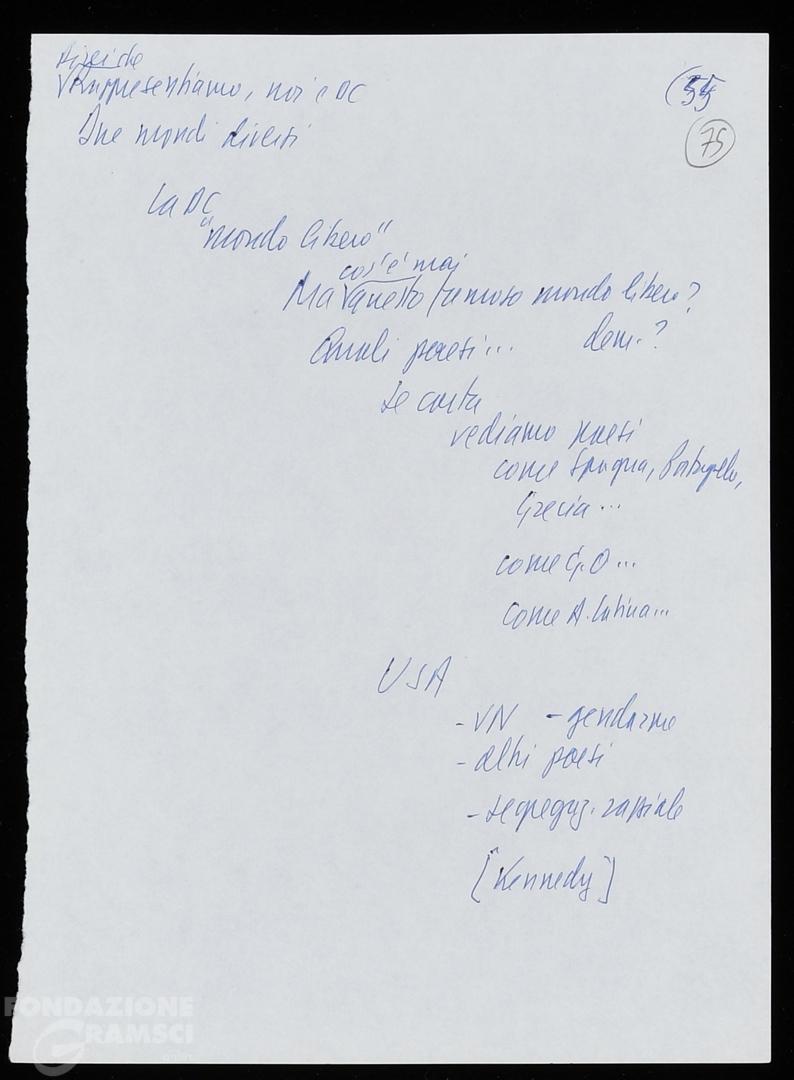 Direi che
Rappresentiamo, noi e DC
55
Due mondi diversi
75
La DC
"mondo libero"
cos'è mai
Ma questo famoso mondo libero?
Quali paesi... dem.?
Se carta
vediamo paesi
come Spagna, Portogallo,
Grecia...
come G.O...
come A. Latina...
USA
- VN - gendarme
- altri paesi
- segregaz. razziale
[Kennedy]
FONDAZIONE
GRAMSCI